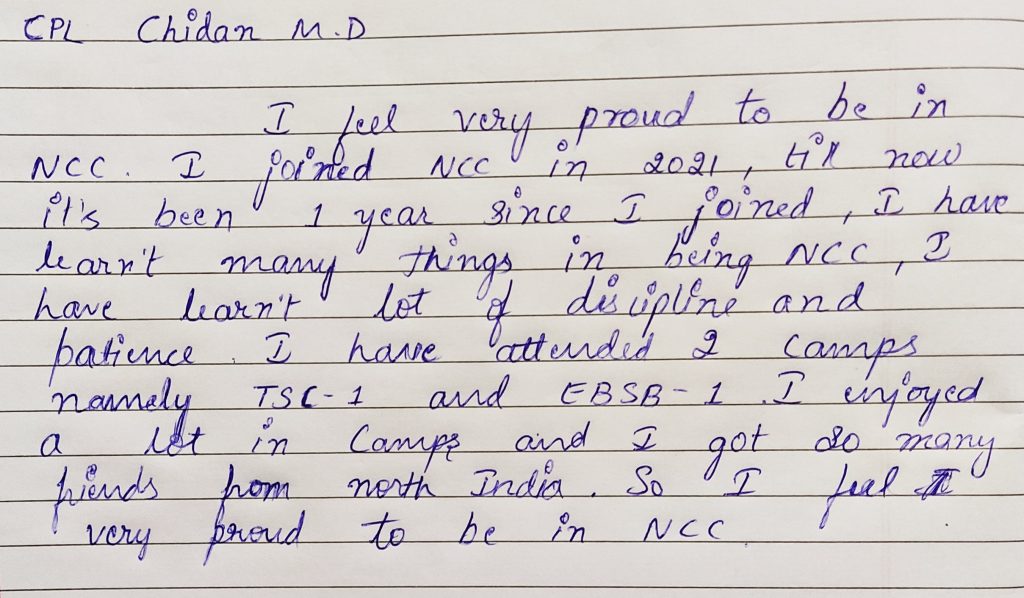 CPL Chidan M.D
I feel very proud to be in
NCC. I joined NCC in 2021, till now
it's been 1 year since I joined, I have
learn't many things in being NCC, I
have learn't lot of discipline and
patience. I have attended 2 camps
namely TSC-1 and EBSB-1. I enjoyed
a lot in Camps and I got so many
friends from north India. So I feel
very proud to be in NCC